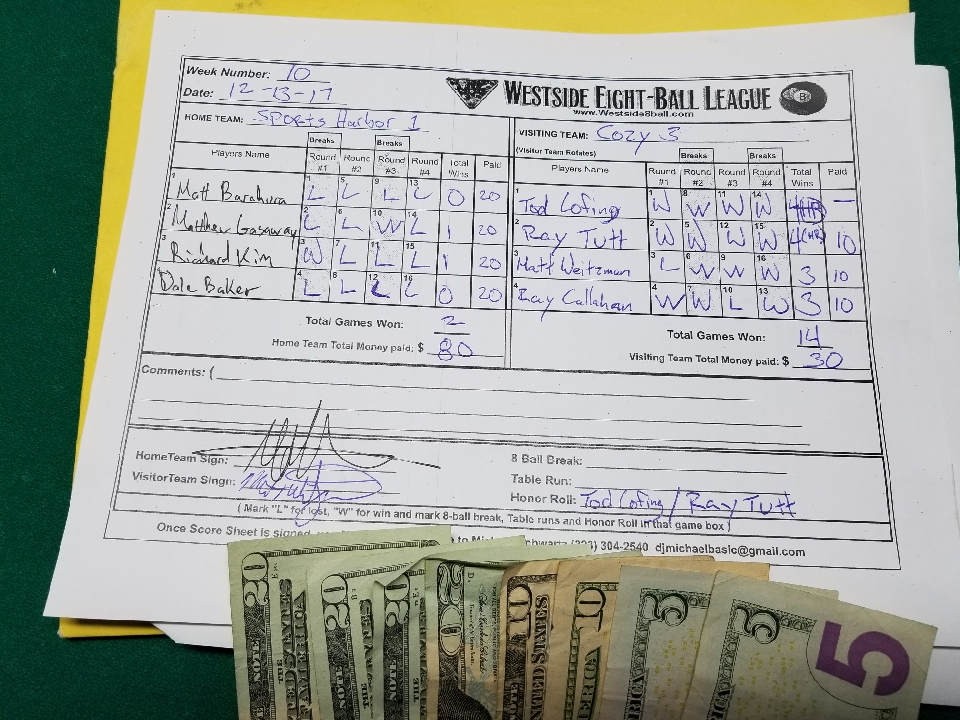 Week Number: 10
Date: 12-13-17
WESTSIDE EIGHT-BALL LEAGUE 8
www.Westside8ball.com
HOME TEAM: Sports Harbor 1
VISITING TEAM: Cozy 3
(Visitor Team Rotates)
Breaks Breaks
Players Name Round #1 Round #2 Round #3 Round #4 Total Wins Paid
1 Matt Barahura 1 L 5 L 9 L 13 L 0 20
2 Matthew Gasaway 2 L 6 L 10 W 14 L 1 20
3 Richard Kim 3 W 7 L 11 L 15 L 1 20
4 Dale Baker 4 L 8 L 12 L 16 L 0 20
Total Games Won: 2
Home Team Total Money paid: $ 80
Breaks Breaks
Players Name Round #1 Round #2 Round #3 Round #4 Total Wins Paid
1 Tod Lofing 1 W 8 W 11 W 14 W 4(HR) —
2 Ray Tutt 2 W 5 W 12 W 15 W 4(HR) 10
3 Matt Weitzman 3 L 6 W 9 W 16 W 3 10
4 Ray Callahan 4 W 7 W 10 L 13 W 3 10
Total Games Won: 14
Visiting Team Total Money paid: $ 30
Comments: (
HomeTeam Sign:
VisitorTeam Singn:
8 Ball Break:
Table Run:
Honor Roll: Tod Lofing / Ray Tutt
( Mark "L" for lost, "W" for win and mark 8-ball break, Table runs and Honor Roll in that game box )
Once Score Sheet is signed
304-2540 djmichaelbasic@gmail.com
20 20 20 20 10 10 5 5 5
NOTE
UNITED STATES